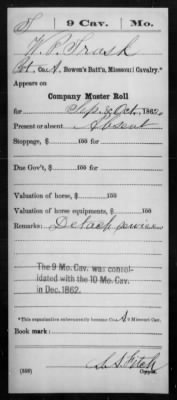 T | 9 Cav. | Mo.
W. P. Trask
Pvt., Co. A, Bowen's Batt'n, Missouri Cavalry.*
Appears on
Company Muster Roll
for Sep. & Oct., 1862.
Present or absent Absent
Stoppage, $ 100 for
Due Gov't, $ 100
Valuation of horse, $ 100
Valuation of horse equipments, $ 100
Remarks: Detach service
The 9 Mo. Cav. was consol-
idated with the 10 Mo. Cav.
in Dec. 1862.
*This organization subsequently became Co. A 9 Missouri Cav.
Book mark:
S. S. Fitch
(359) Copyist.